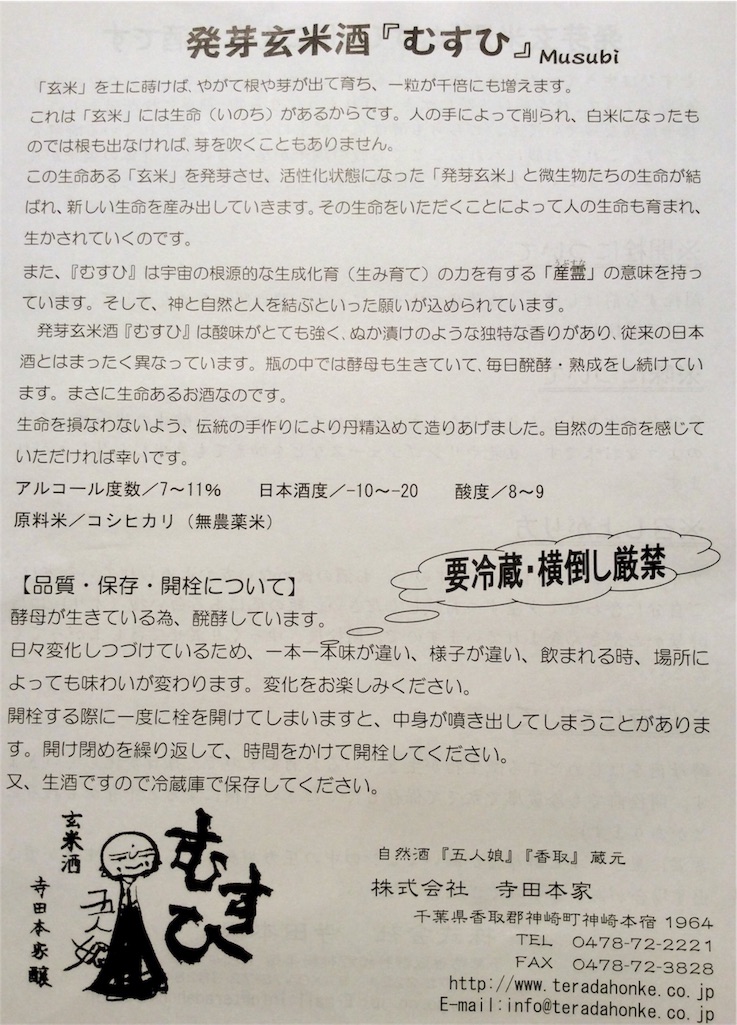 発芽玄米酒『むすひ』Musubi
「玄米」を土に蒔けば、やがて根や芽が出て育ち、一粒が千倍にも増えます。
これは「玄米」には生命（いのち）があるからです。人の手によって削られ、白米になったも
のでは根も出なければ、芽を吹くこともありません。
この生命ある「玄米」を発芽させ、活性化状態になった「発芽玄米」と微生物たちの生命が結
ばれ、新しい生命を産み出していきます。その生命をいただくことによって人の生命も育まれ、
生かされていくのです。
また、『むすひ』は宇宙の根源的な生成化育（生み育て）の力を有する「産霊」の意味を持っ
ています。そして、神と自然と人を結ぶといった願いが込められています。
発芽玄米酒『むすひ』は酸味がとても強く、ぬか漬けのような独特な香りがあり、従来の日本
酒とはまったく異なっています。瓶の中では酵母も生きていて、毎日醗酵・熟成をし続けてい
ます。まさに生命あるお酒なのです。
生命を損なわないよう、伝統の手作りにより丹精込めて造りあげました。自然の生命を感じて
いただければ幸いです。
アルコール度数／7～11％　日本酒度／-10～-20　酸度／8～9
原料米／コシヒカリ（無農薬米）
要冷蔵・横倒し厳禁
【品質・保存・開栓について】
酵母が生きている為、醗酵しています。
日々変化しつづけているため、一本一本味が違い、様子が違い、飲まれる時、場所に
よっても味わいが変わります。変化をお楽しみください。
開栓する際に一度に栓を開けてしまいますと、中身が噴き出してしまうことがありま
す。開け閉めを繰り返して、時間をかけて開栓してください。
又、生酒ですので冷蔵庫で保存してください。
玄米酒
むすひ
五人娘
寺田本家醸
自然酒『五人娘』『香取』蔵元
株式会社　寺田本家
千葉県香取郡神崎町神崎本宿 1964
TEL　0478-72-2221
FAX　0478-72-3828
http://www.teradahonke.co.jp
E-mail:info@teradahonke.co.jp